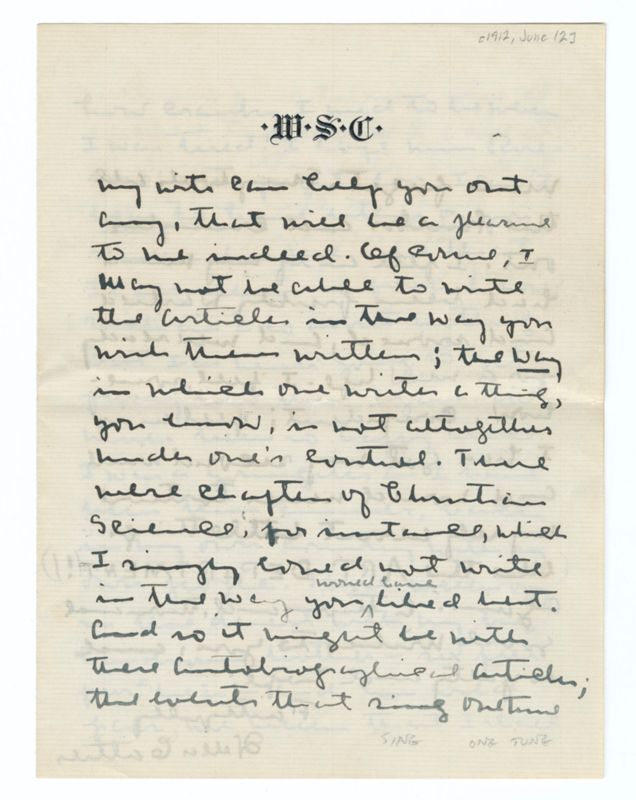 [1912, June 12]
·W·S·C·
my wits can help you out
any, that will be a pleasure
to me indeed. Of course, I
may not be able to write
the articles in the way you
wish them written; the way
in which one writes a thing,
you know, is not altogether
under one's control. There
were chapters of Christian
Science, for instance, which
I simply could not write
would have
in the way you liked best.
And so it might be with
these autobiographical articles;
the events that sing one tune
SING ONE TUNE